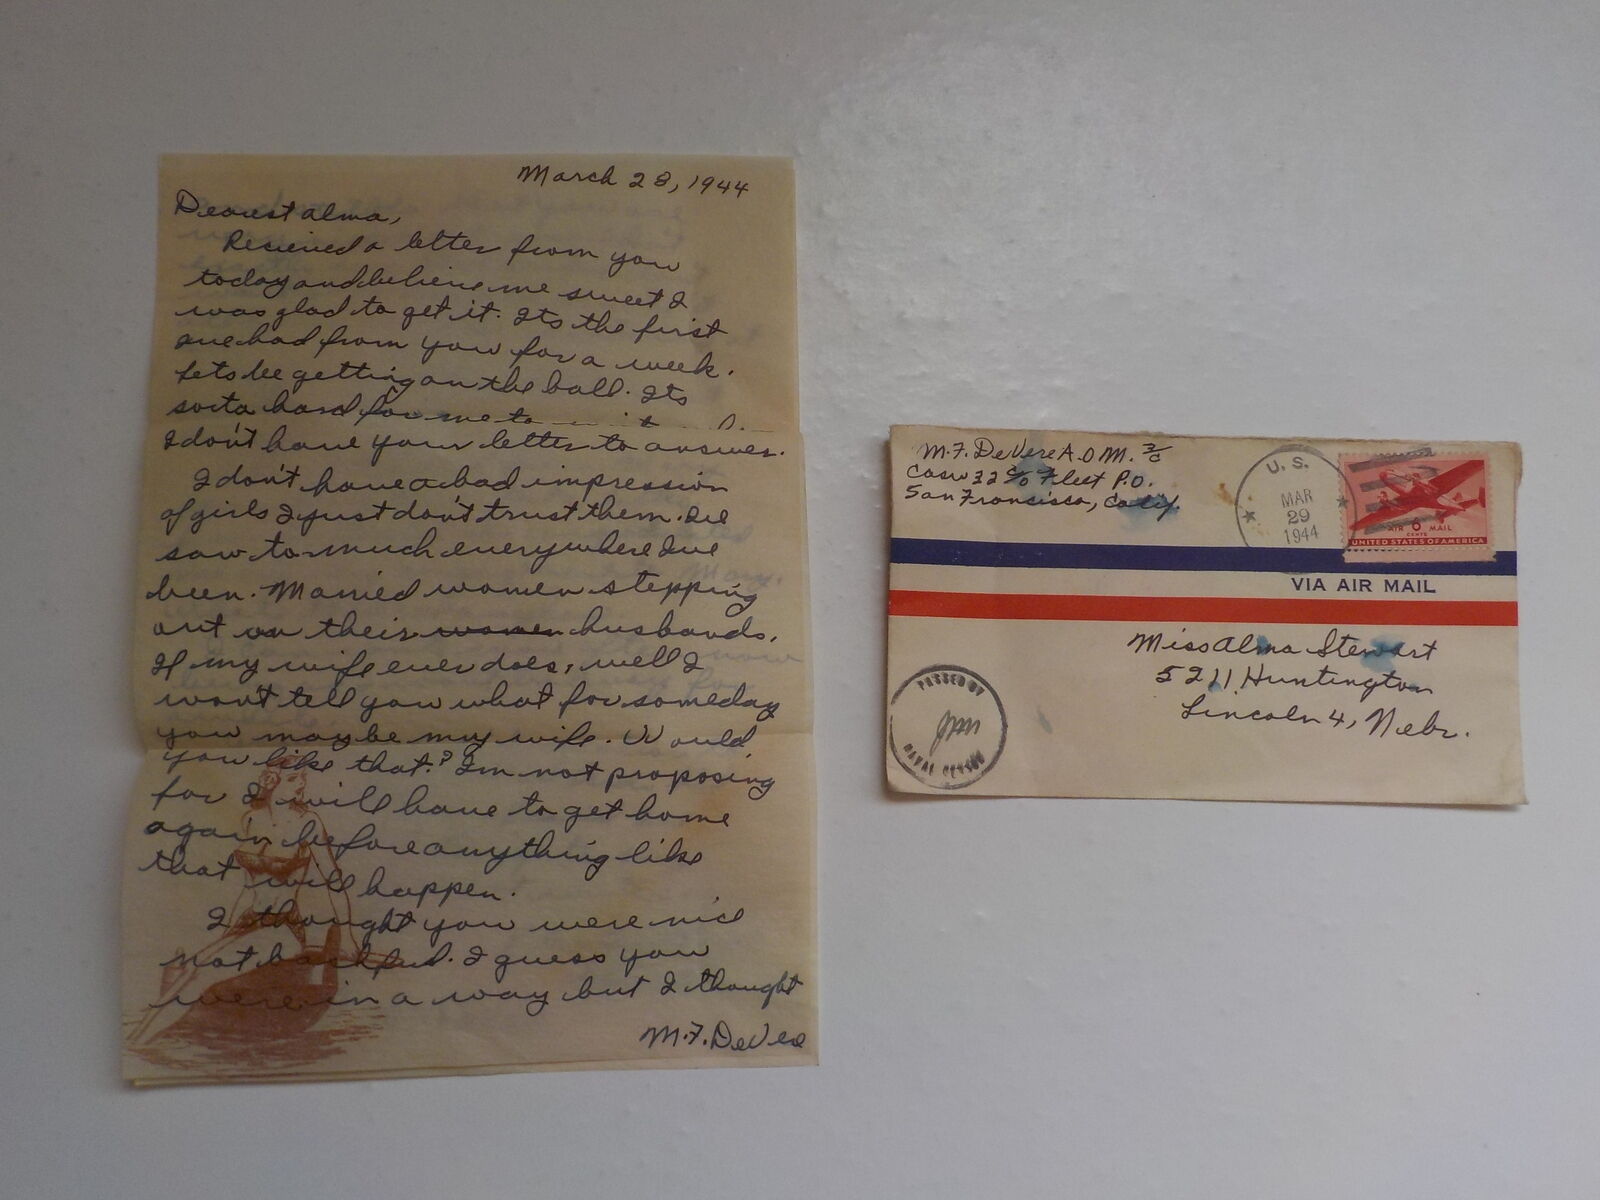 March 28, 1944
Dearest Alma,
Recieved a letter from you
today and believe me sweet I
was glad to get it. Its the first
Ive had from you for a week.
Lets be getting on the ball. Its
sorta hard for me to
I don't have your letter to answer.
I don't have a bad impression
of girls I just don't trust them. Ive
saw to much everywhere Ive
been. Married women stepping
out on their women husbands.
If my wife ever does, well I
won't tell you what for someday
you maybe my wife. Would
you like that? I'm not proposing
for I will have to get home
again before anything like
that will happen.
I thought you were nice
not bashful. I guess you
were in a way but I thought
M.F. DeVere
M.F. DeVere A.O.M. 3/c
Casu 32 c/o Fleet P.O.
San Francisco, Calif.
U.S.
MAR
29
1944
AIR 6 MAIL
CENTS
UNITED STATES OF AMERICA
VIA AIR MAIL
Miss Alma Stewart
5211 Huntington
Lincoln 4, Nebr.
PASSED BY
NAVAL CENSOR